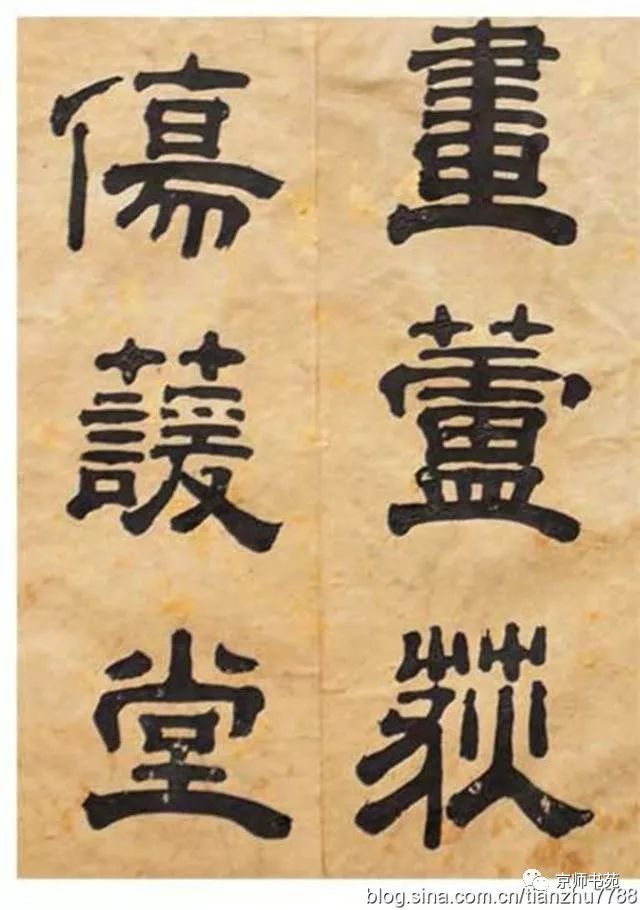 畫蘆荻
傷蘐堂
京师书苑
blog.sina.com.cn/tianzhu7788